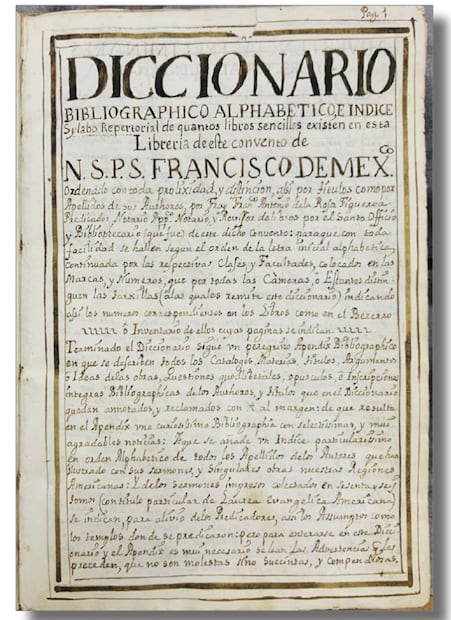 Pag 1
DICCIONARIO
BIBLIOGRAPHICO ALPHABETICO, E INDICE
Sylabo Repertorial de quantos libros sencillos existen en esta
Libreria de este convento de
N. S. P. S. FRANCISCO DE MEX.CO
Ordenado con toda prolixidad, y distincion, assi por titulos como por
Apellidos de sus Authores, por Fray Franco Antonio de la Rosa Figueroa
Predicador, Notario Appco Notario, y Revisor de libros por el Santo Officio
y Bibliothecario (que fue) de este dicho Convento: paraque con toda
facilidad se hallen segun el orden de la letra inicial alphabetica,
continuada por las respectivas Clases, y Facultades, colocados en las
Marcas, y Numeros, que por todas las Cameras, ô Estantes distin-
guen las tarxillas (a las quales remite este diccionario) indicando
assi los numeros correspondientes en los Libros como en el Becerro
ô Inventario de ellos cuyas paginas se indican
Terminado el Diccionario sigue un peregrino Apendix Bibliographico
en que se describen todos los Catalogos, Materias, titulos, Argumentos
ô Ideas de las obras, Questiones quodlibetales, opusculos, ô Inscripciones
integras Bibliographicas de los Authores, y titulos que en el Diccionario
quedan annotados, y reclamados con A al margen: de que resulta
en el Apendix una curiosissima Bibliographia con selectissimas, y muy
agradables noticias: Aque se añade un Indice particularissimo
en orden Alphabetico de todos los Apellidos de los Autores que han
ilustrado con sus sermones, y singulares obras nuestras Regiones
Americanas: Y de los sermones impresos colectados en sesenta y seis
tomos (con titulo particular de Laurea Evangelica Americana)
se indican, para alivio de los Predicadores, assi los Assumptos como
los templos donde se predicaron: pero para enterarse en este Dicc-
ionario y el Apendix es muy necesario se lean las Advertencias q les
preceden, que no son molestas sino succintas, y compendiosas.